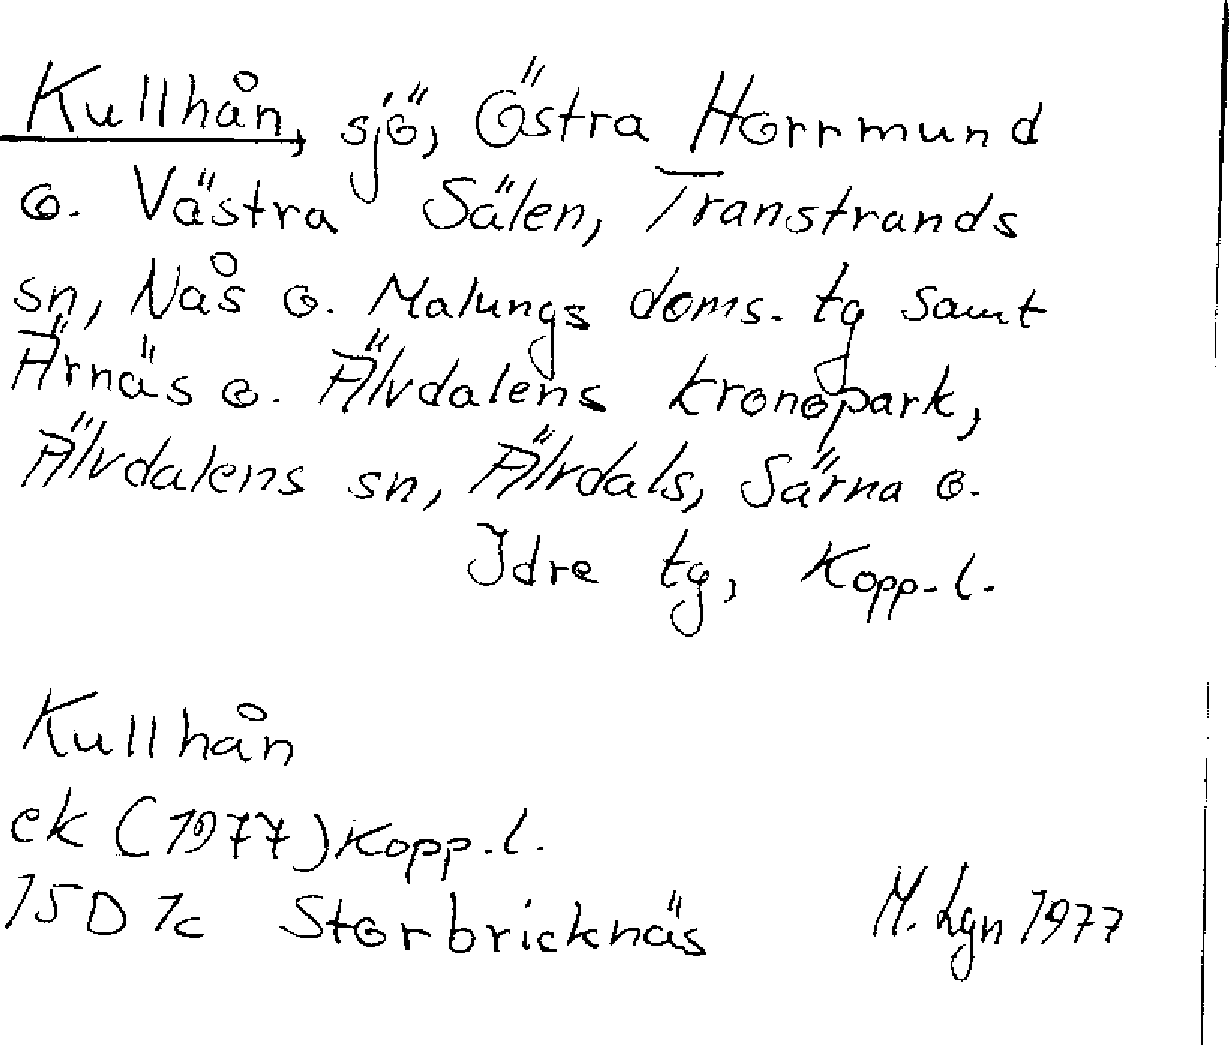 Kullhån, sjö, Östra Horrmund
o. Västra Sälen, Transtrands
sn, Nås o. Malungs doms. tg samt
Ärnäs o. Älvdalens kronopark,
Älvdalens sn, Älvdals, Särna o.
Idre tg, Kopp. l.
Kullhån
ek (1977) Kopp. l.
15D 1c Storbricknäs
M. Lgn 1977